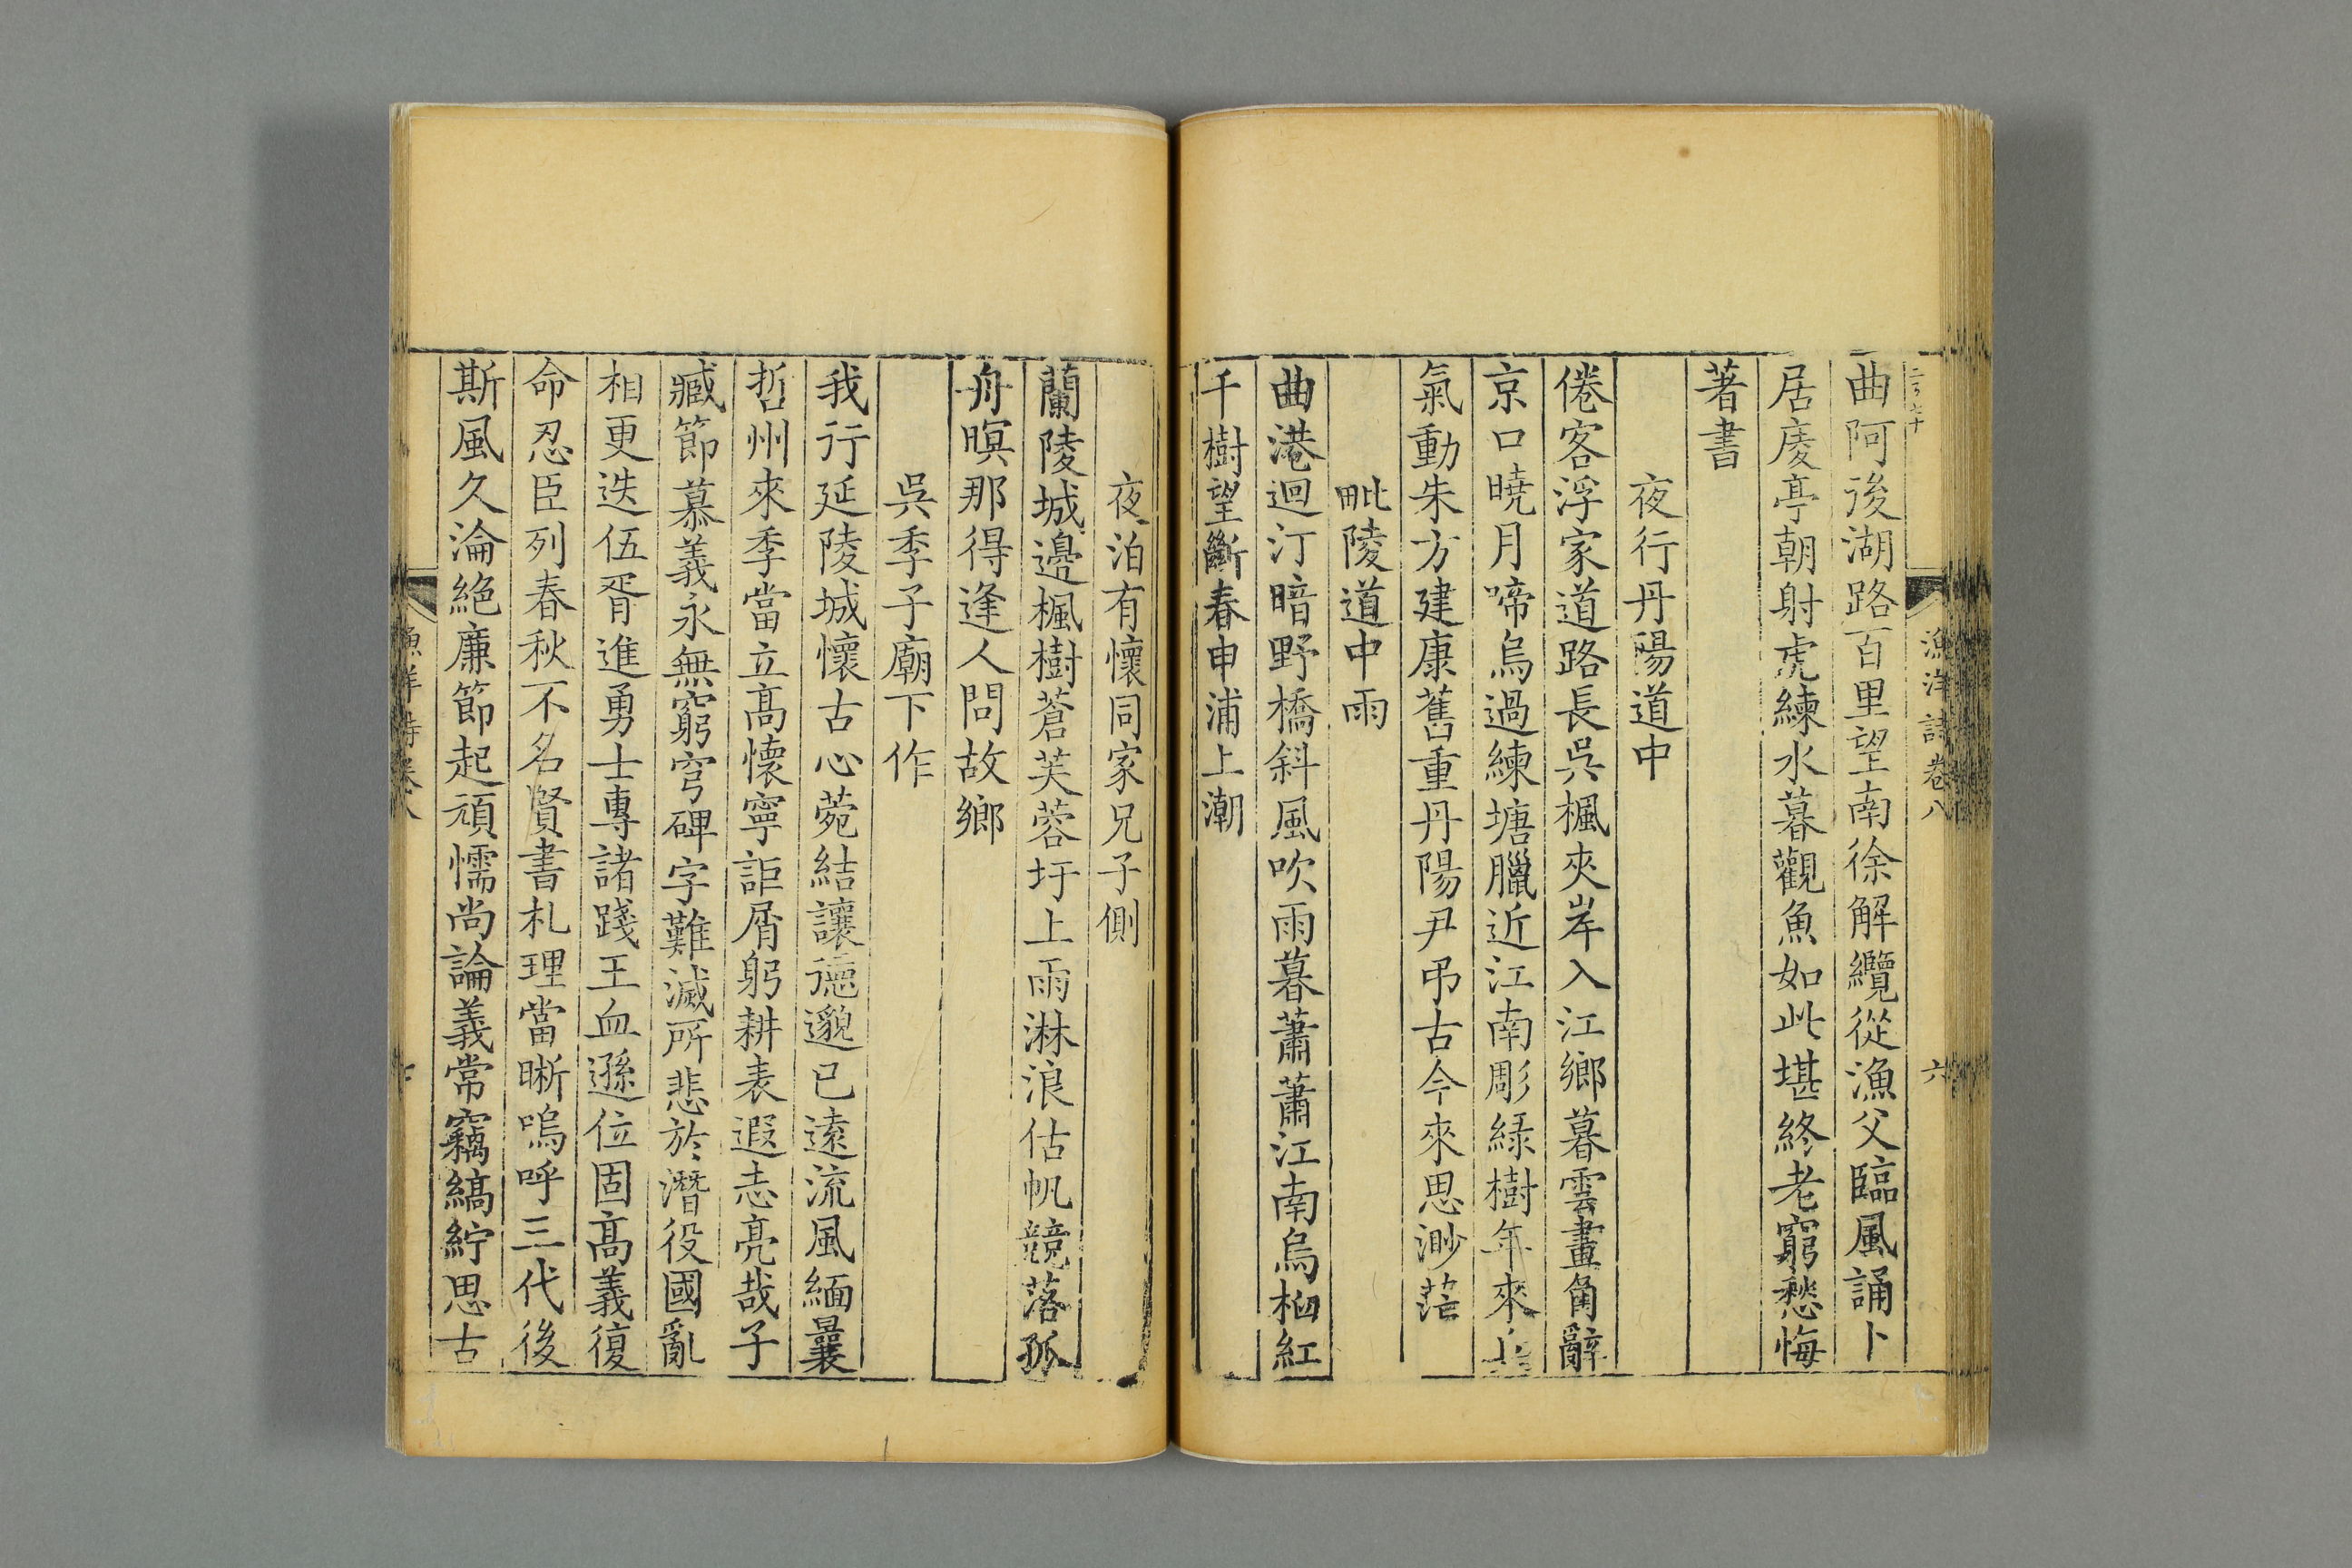 漁洋詩卷八
六
曲阿後湖路百里望南徐解纜從漁父臨風誦卜
居庱亭朝射虎練水暮觀魚如此堪終老窮愁悔
著書
夜行丹陽道中
倦客浮家道路長吳楓夾岸入江鄉暮雲畫角辭
京口曉月啼烏過練塘臘近江南彫綠樹年來
氣動朱方建康舊重丹陽尹弔古今來思渺茫
毗陵道中雨
曲港迴汀暗野橋斜風吹雨暮蕭蕭江南烏桕紅
千樹望斷春申浦上潮
夜泊有懷同家兄子側
蘭陵城邊楓樹蒼芙蓉圩上雨淋浪估帆競落孤
舟暝那得逢人問故鄉
吳季子廟下作
我行延陵城懷古心菀結讓德邈已遠流風緬曩
哲州來季當立高懷寧詎屑躬耕表遐志亮哉子
臧節慕義永無窮穹碑字難滅所悲於潛役國亂
相更迭伍胥進勇士專諸踐王血遜位固高義復
命忍臣列春秋不名賢書札理當晰嗚呼三代後
斯風久淪絕廉節起頑懦尚論義常竊縞紵思古
漁洋詩卷八